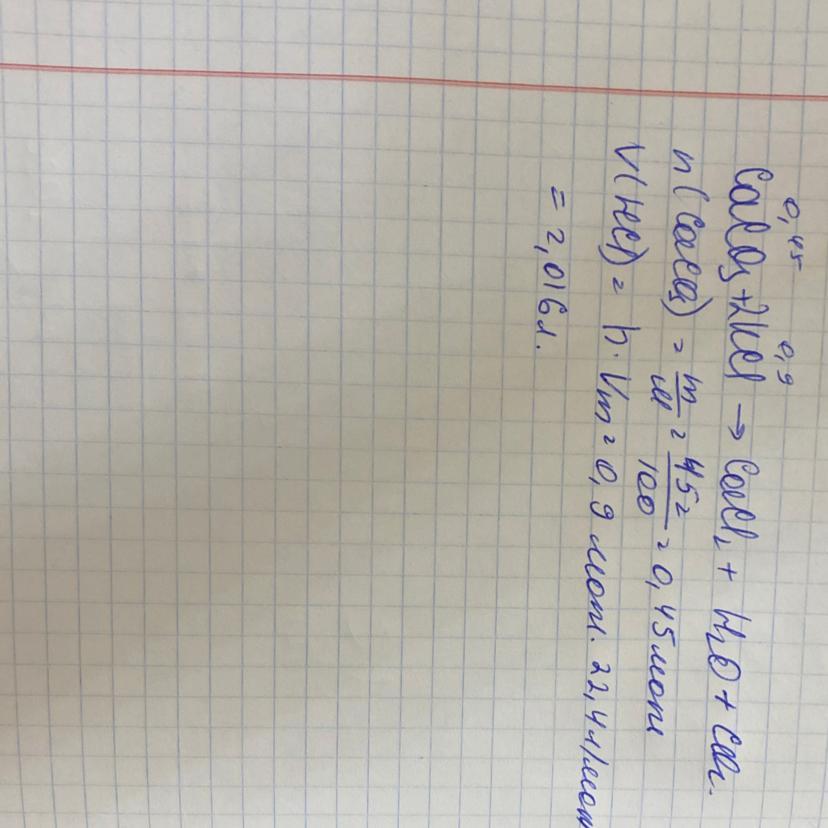 0,45 0,9
CaCO₃ + 2HCl → CaCl₂ + H₂O + CO₂.
n(CaCO₃) = m/M = 45г/100 = 0,45 моль
V(HCl) = n · Vm = 0,9 моль · 22,4 л/моль
= 2,016 л.